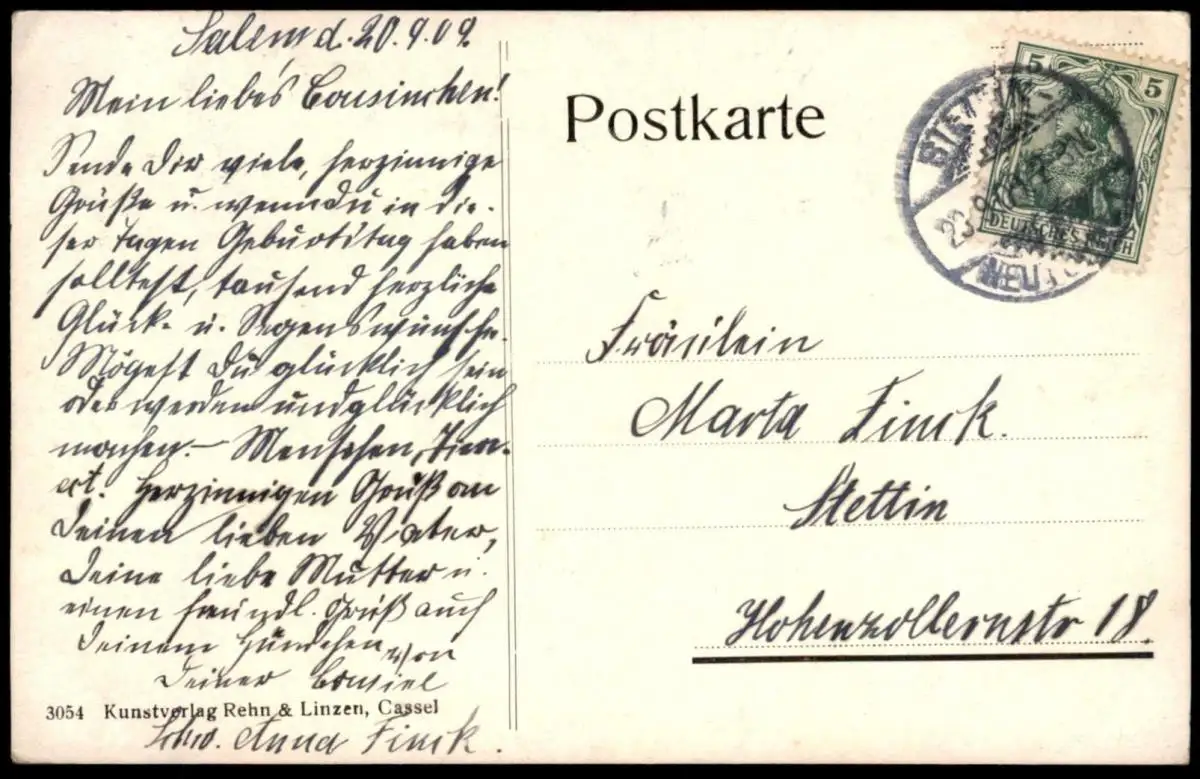 Salem d. 20.9.09.
Mein liebes Cousinchen!
Sende Dir viele, herzinnige
Grüße u. wenn Du in die-
ser Tagen Geburtstag haben
solltest, tausend herzliche
Glück- u. Segenswünsche.
Mögest Du glücklich sein
oder werden und glücklich
machen. – Menschen,
Herzinnigen Gruß an
Deinen lieben Vater,
Deine liebe Mutter u.
einen freundl. Gruß auch
Deinem Hündchen von
Deiner Cousine
Schw. Anna Finck.
3054 Kunstverlag Rehn & Linzen, Cassel
Postkarte
5 5
DEUTSCHES REICH
STETTIN
23.9.09
NEUTO
Fräulein
Marta Finck.
Stettin
Hohenzollernstr 18.